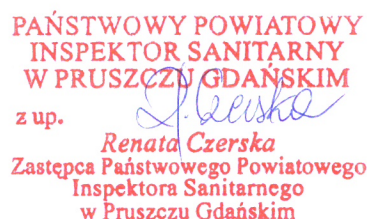 PAŃSTWOWY POWIATOWY
INSPEKTOR SANITARNY
W PRUSZCZU GDAŃSKIM
z up.
R. Czerska
Renata Czerska
Zastępca Państwowego Powiatowego
Inspektora Sanitarnego
w Pruszczu Gdańskim